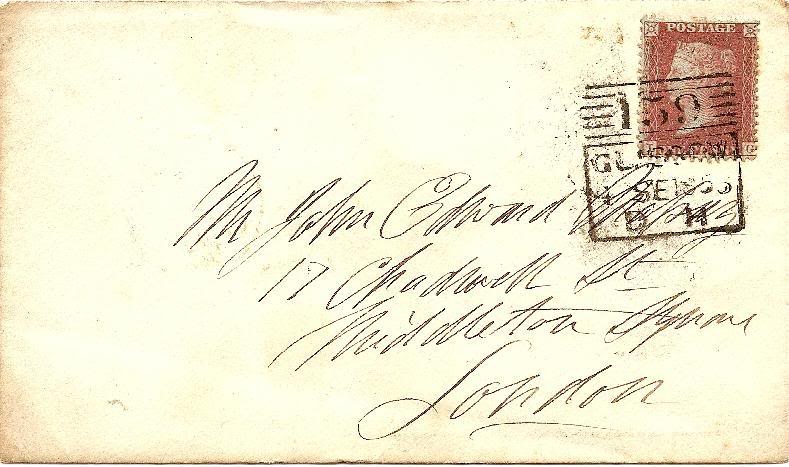 POSTAGE
159
GLASGOW
SE
Mr John Edward
17 Chadwell St
Middleton Square
London